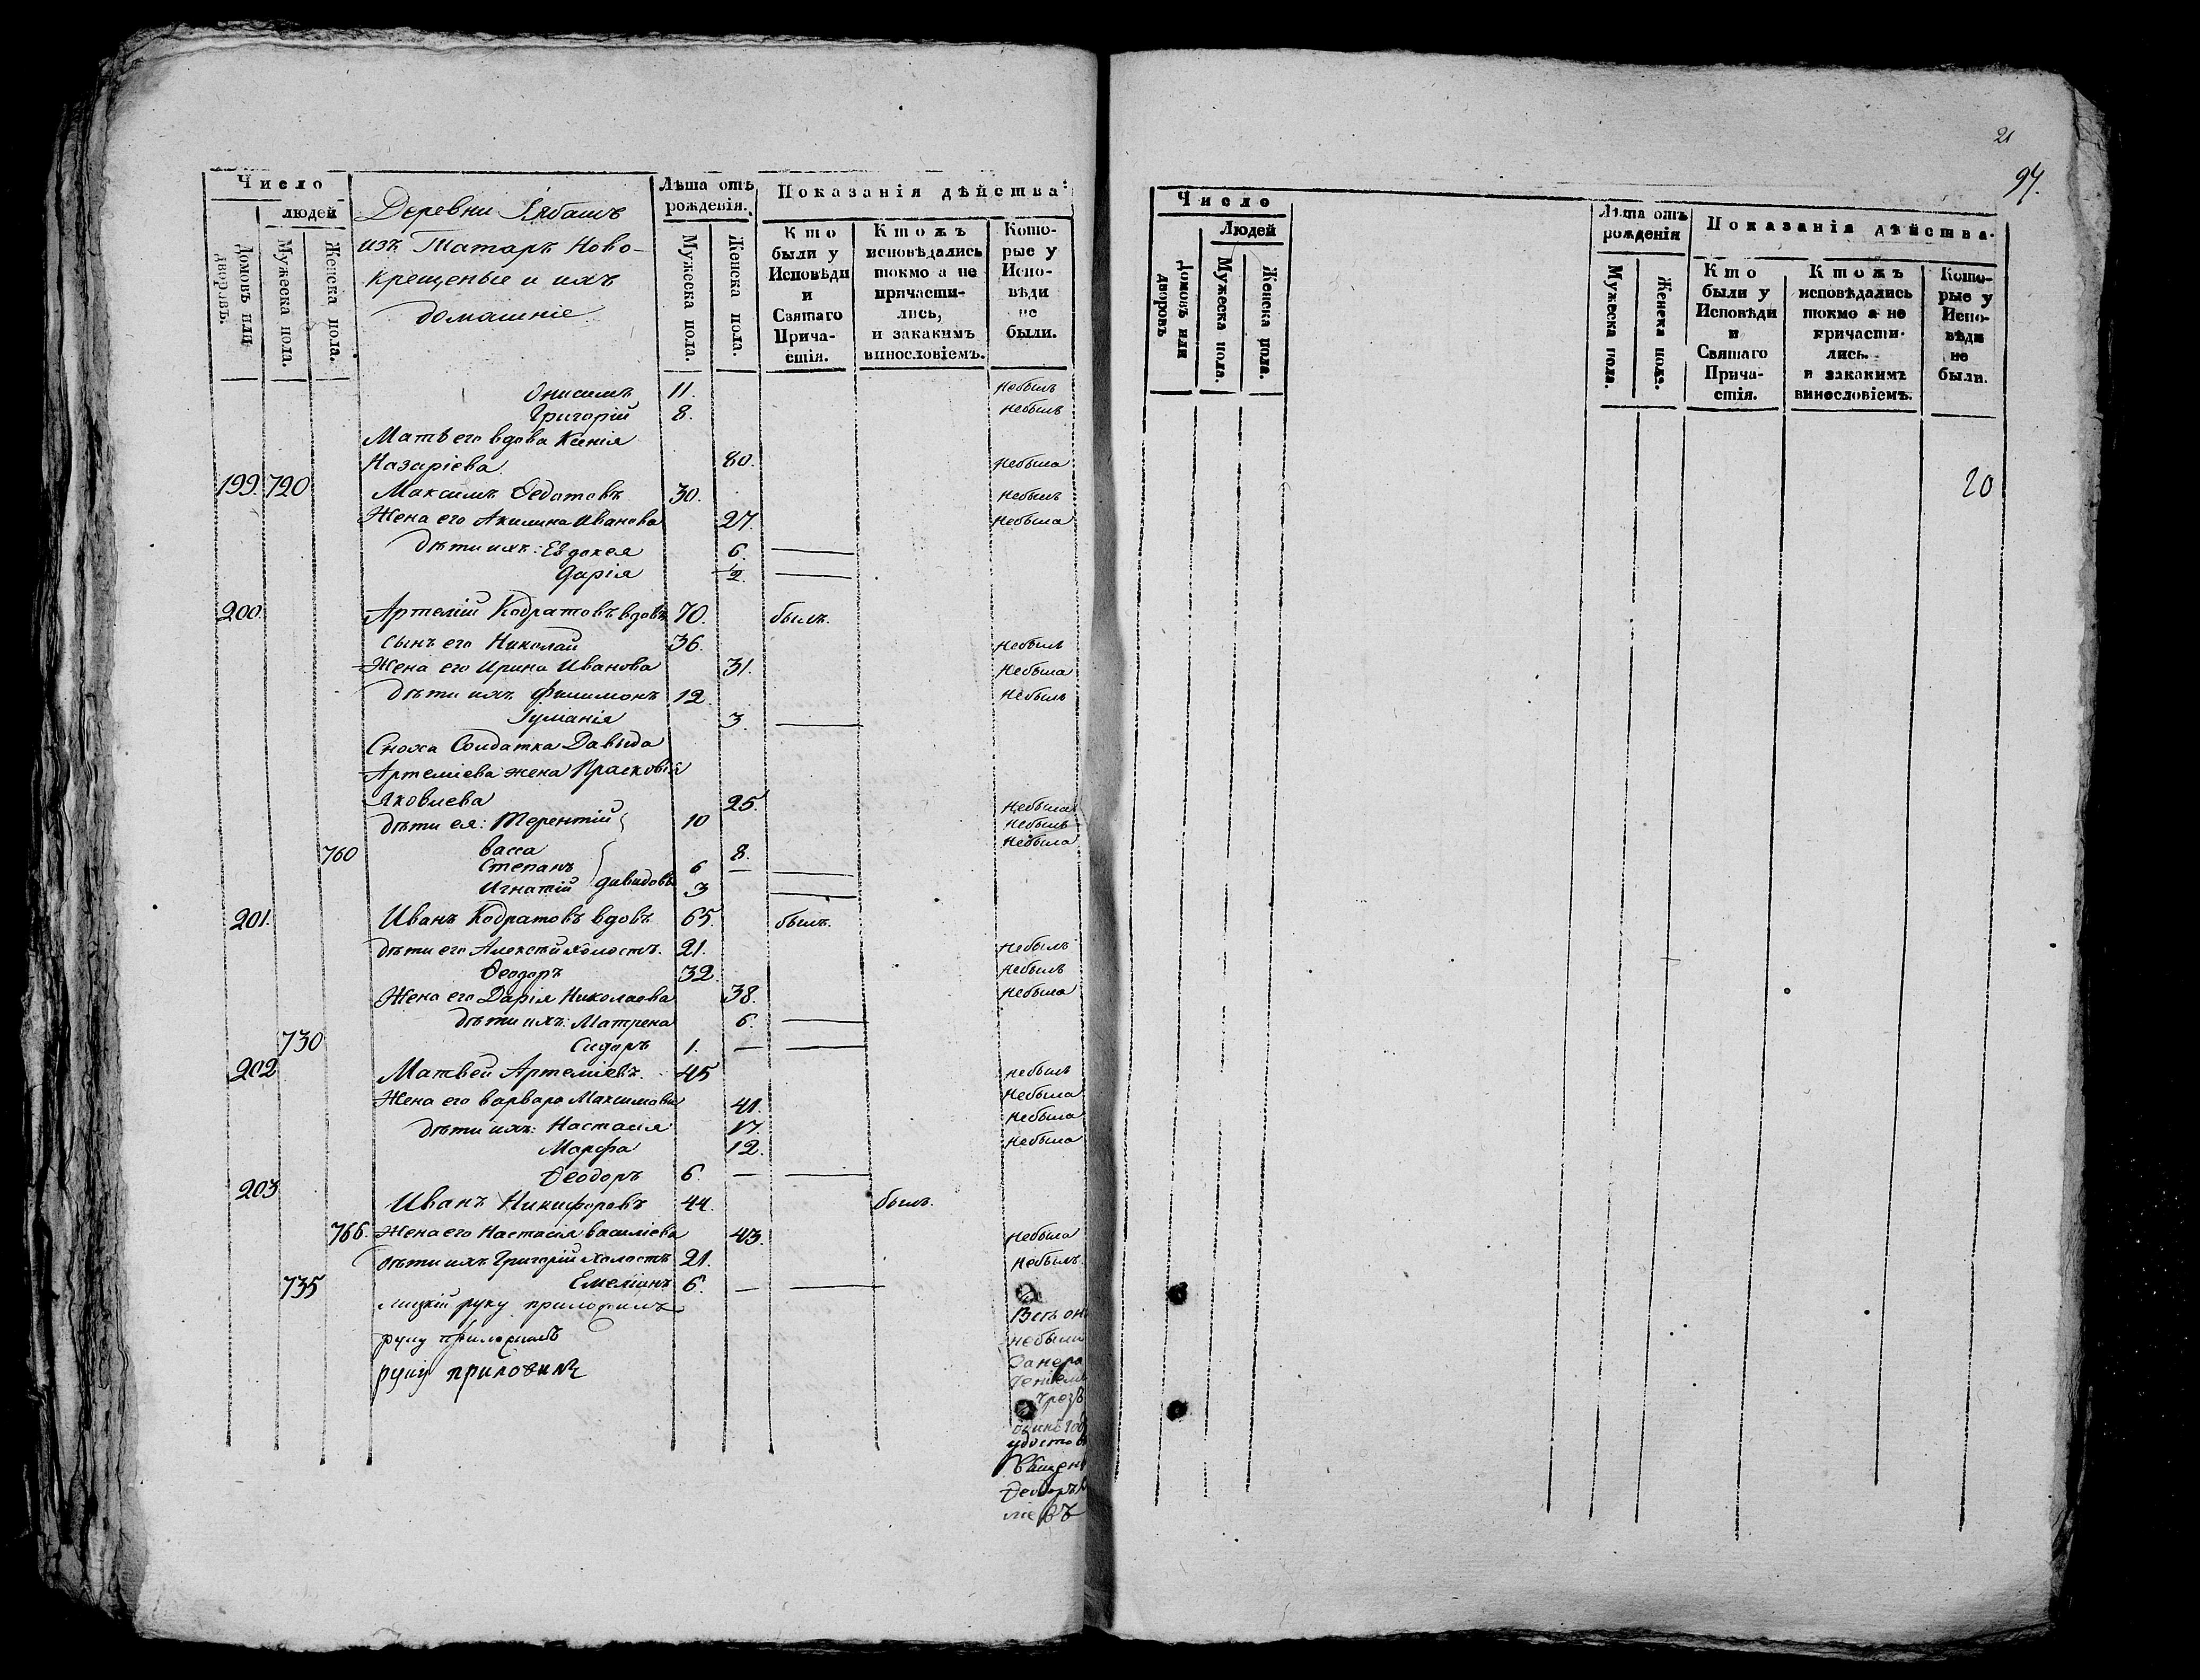 Число
людей
Домовъ или дворовъ.
Мужеска пола.
Женска пола.
Деревни Лябашъ
изъ Татаръ Ново-
крещеныя и ихъ
домашніе
Лѣта отъ рожденія.
Мужеска пола.
Женска пола.
Показанія дѣйства:
Кто были у Исповѣди и Святаго Причастія.
Ктожъ исповѣдались токмо а не причастились, и закакимъ винословіемъ.
Которые у Исповѣди не были.
Онисимъ 11. небылъ
Григорій 8. небылъ
Мать его вдова Ксенія
Назаріева 80. небыла
199. 720 Максимъ Федотовъ 30. небылъ
Жена его Акилина Иванова 27. небыла
дѣти ихъ: Евдокея 6. —
Дарія ½. —
200. Артемій Кодратовъ вдовъ 70. былъ.
сынъ его Николай 36. небылъ
Жена его Ирина Иванова 31. небыла
дѣти ихъ Филимонъ 12. небылъ
Іуліанія 3. —
Сноха Солдатка Давыда
Артеміева жена Прасковія
Яковлева 25. небыла
дѣти ея: Терентій 10 небылъ
760 васса 8. небыла
Степанъ 6 — —
Игнатій давыдовы 3 —
201. Иванъ Кодратовъ вдовъ 65. былъ.
дѣти его Алексѣй холостъ. 21. небылъ
Феодоръ 32. небылъ
Жена его Дарія Николаева 38. небыла
дѣти ихъ: Матрена 6. —
730 Сидоръ 1. — —
202 Матвей Артеміевъ. 45 небылъ
Жена его варвара Максимова 41. небыла
дѣти ихъ: Настасія 17. небыла
Марфа 12. небыла
Феодоръ 6. — —
203 Иванъ Никифоровъ 44. былъ.
766. Жена его Настасія василіева 43. небыла
дѣти ихъ Григорій холостъ 21. небылъ.
735 Емеліанъ 6. — —
лицкій руку приложилъ
руку приложилъ
руку приложилъ
Всѣ он
небыли
чрезъ
удосто
Священ
Феодоръ
21
94.
Число
Людей
Домовъ или дворовъ
Мужеска пола.
Женска пола.
Лѣта отъ рожденія
Мужеска пола.
Женска пола.
Показанія дѣйства.
Кто были у Исповѣди и Святаго Причастія.
Ктожъ исповѣдались токмо а не причастились. и закакимъ винословіемъ.
Которые у Исповѣди не были.
20